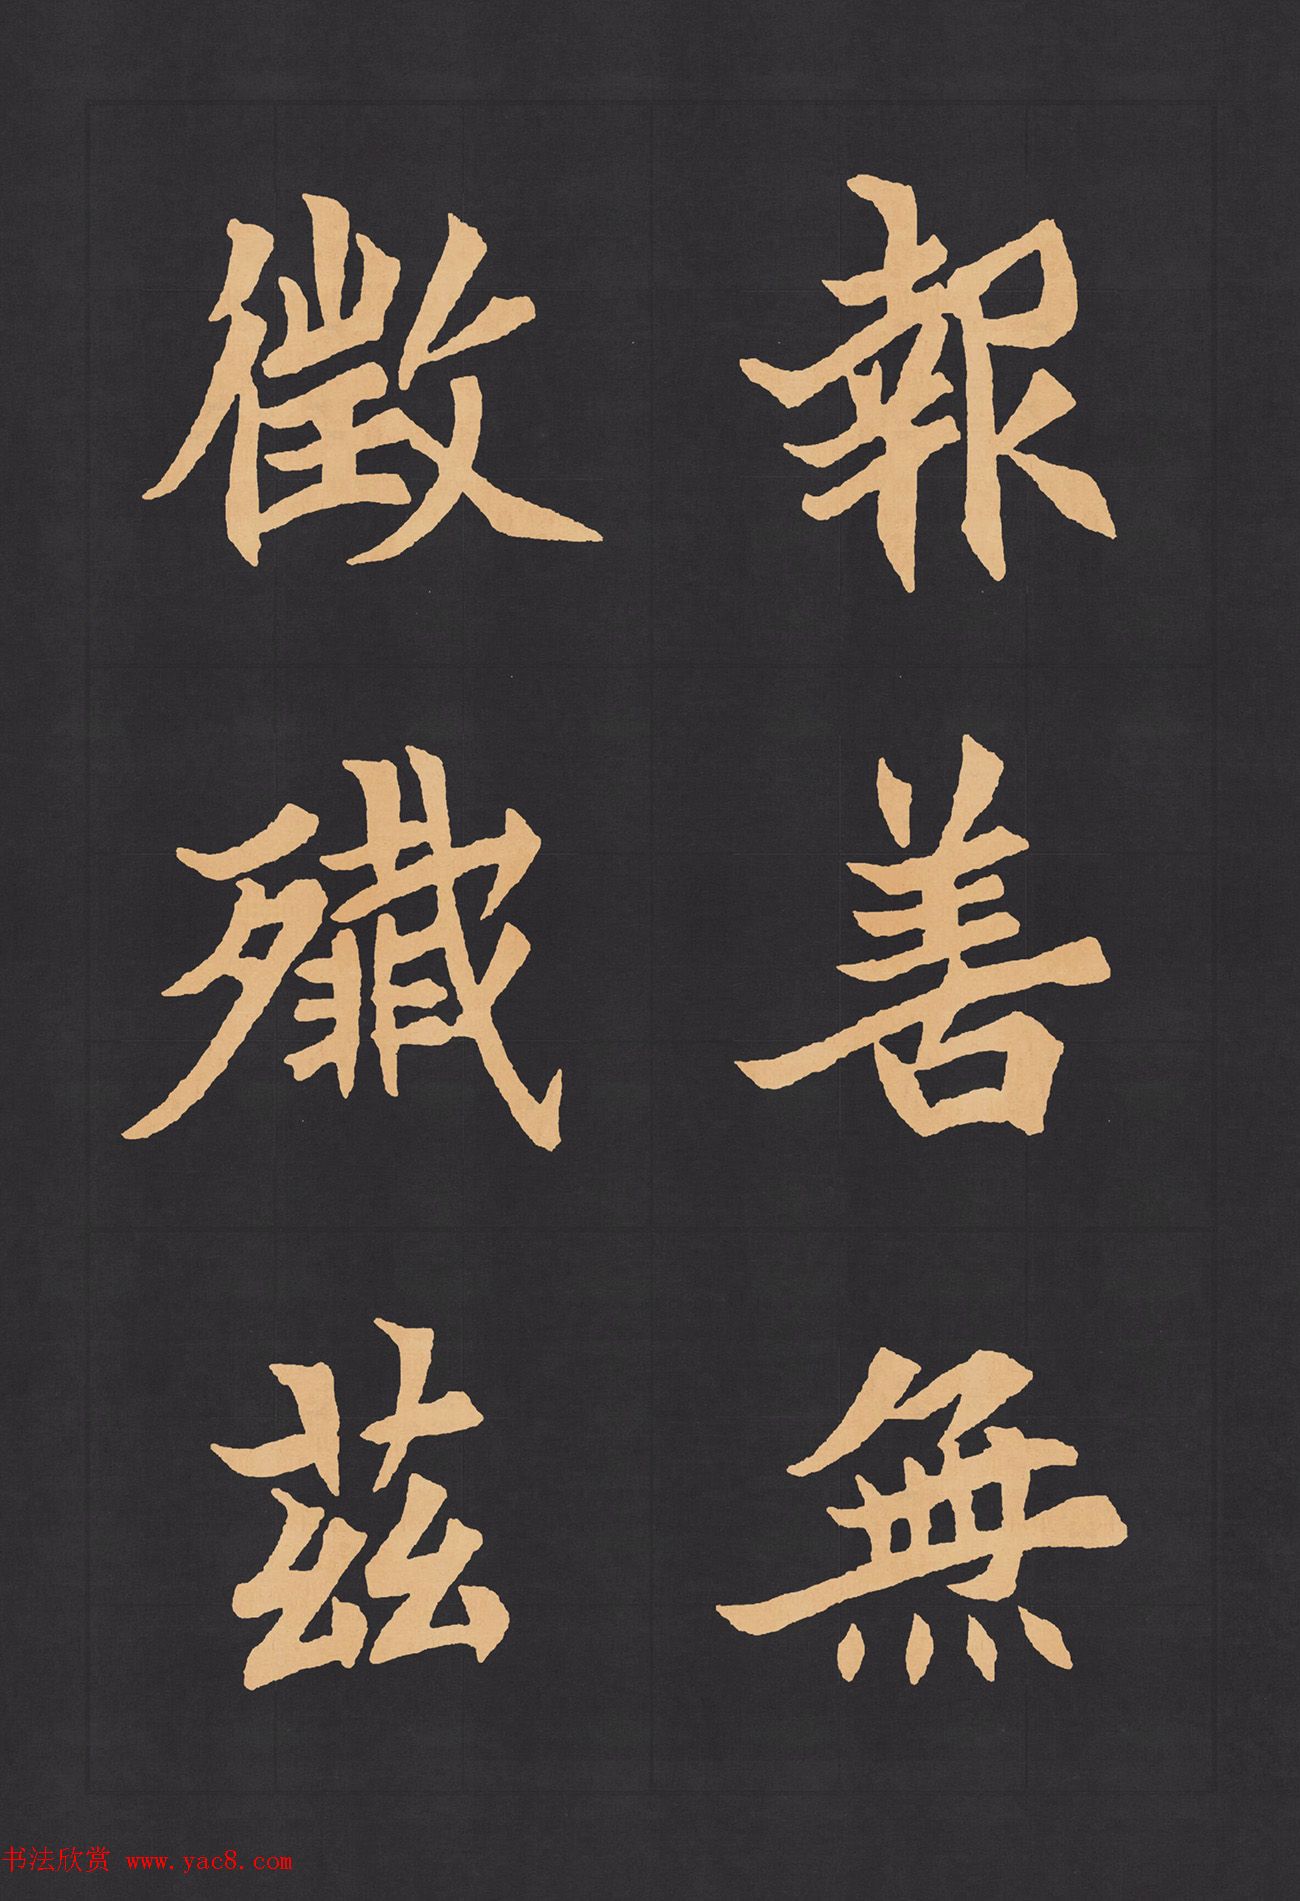 報善無
徵殲茲
书法欣赏 www.yac8.com